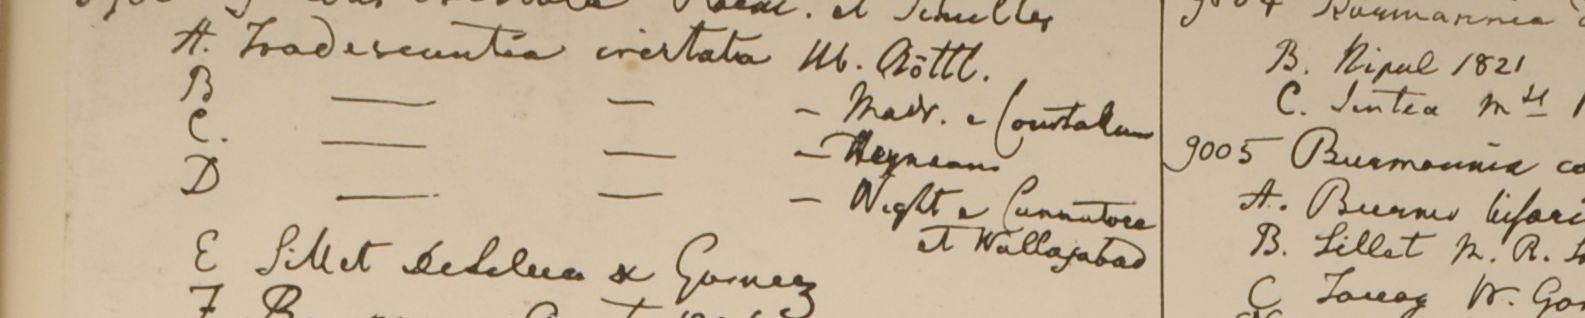 Roem. et Schultes
A. Tradescantia cristata Hb. Röttl.
B — — — Madr. e Courtalum
C. — — — Heyneana
D — — — Wight e Cunnutore
et Wallajabad
E Sillet DeSilva & Gomez
F
9004 Burmannia
B. Nipal 1821
C. Sintea
9005 Burmannia co
A. Burm
B. Sillet
C Tavoy W. Go